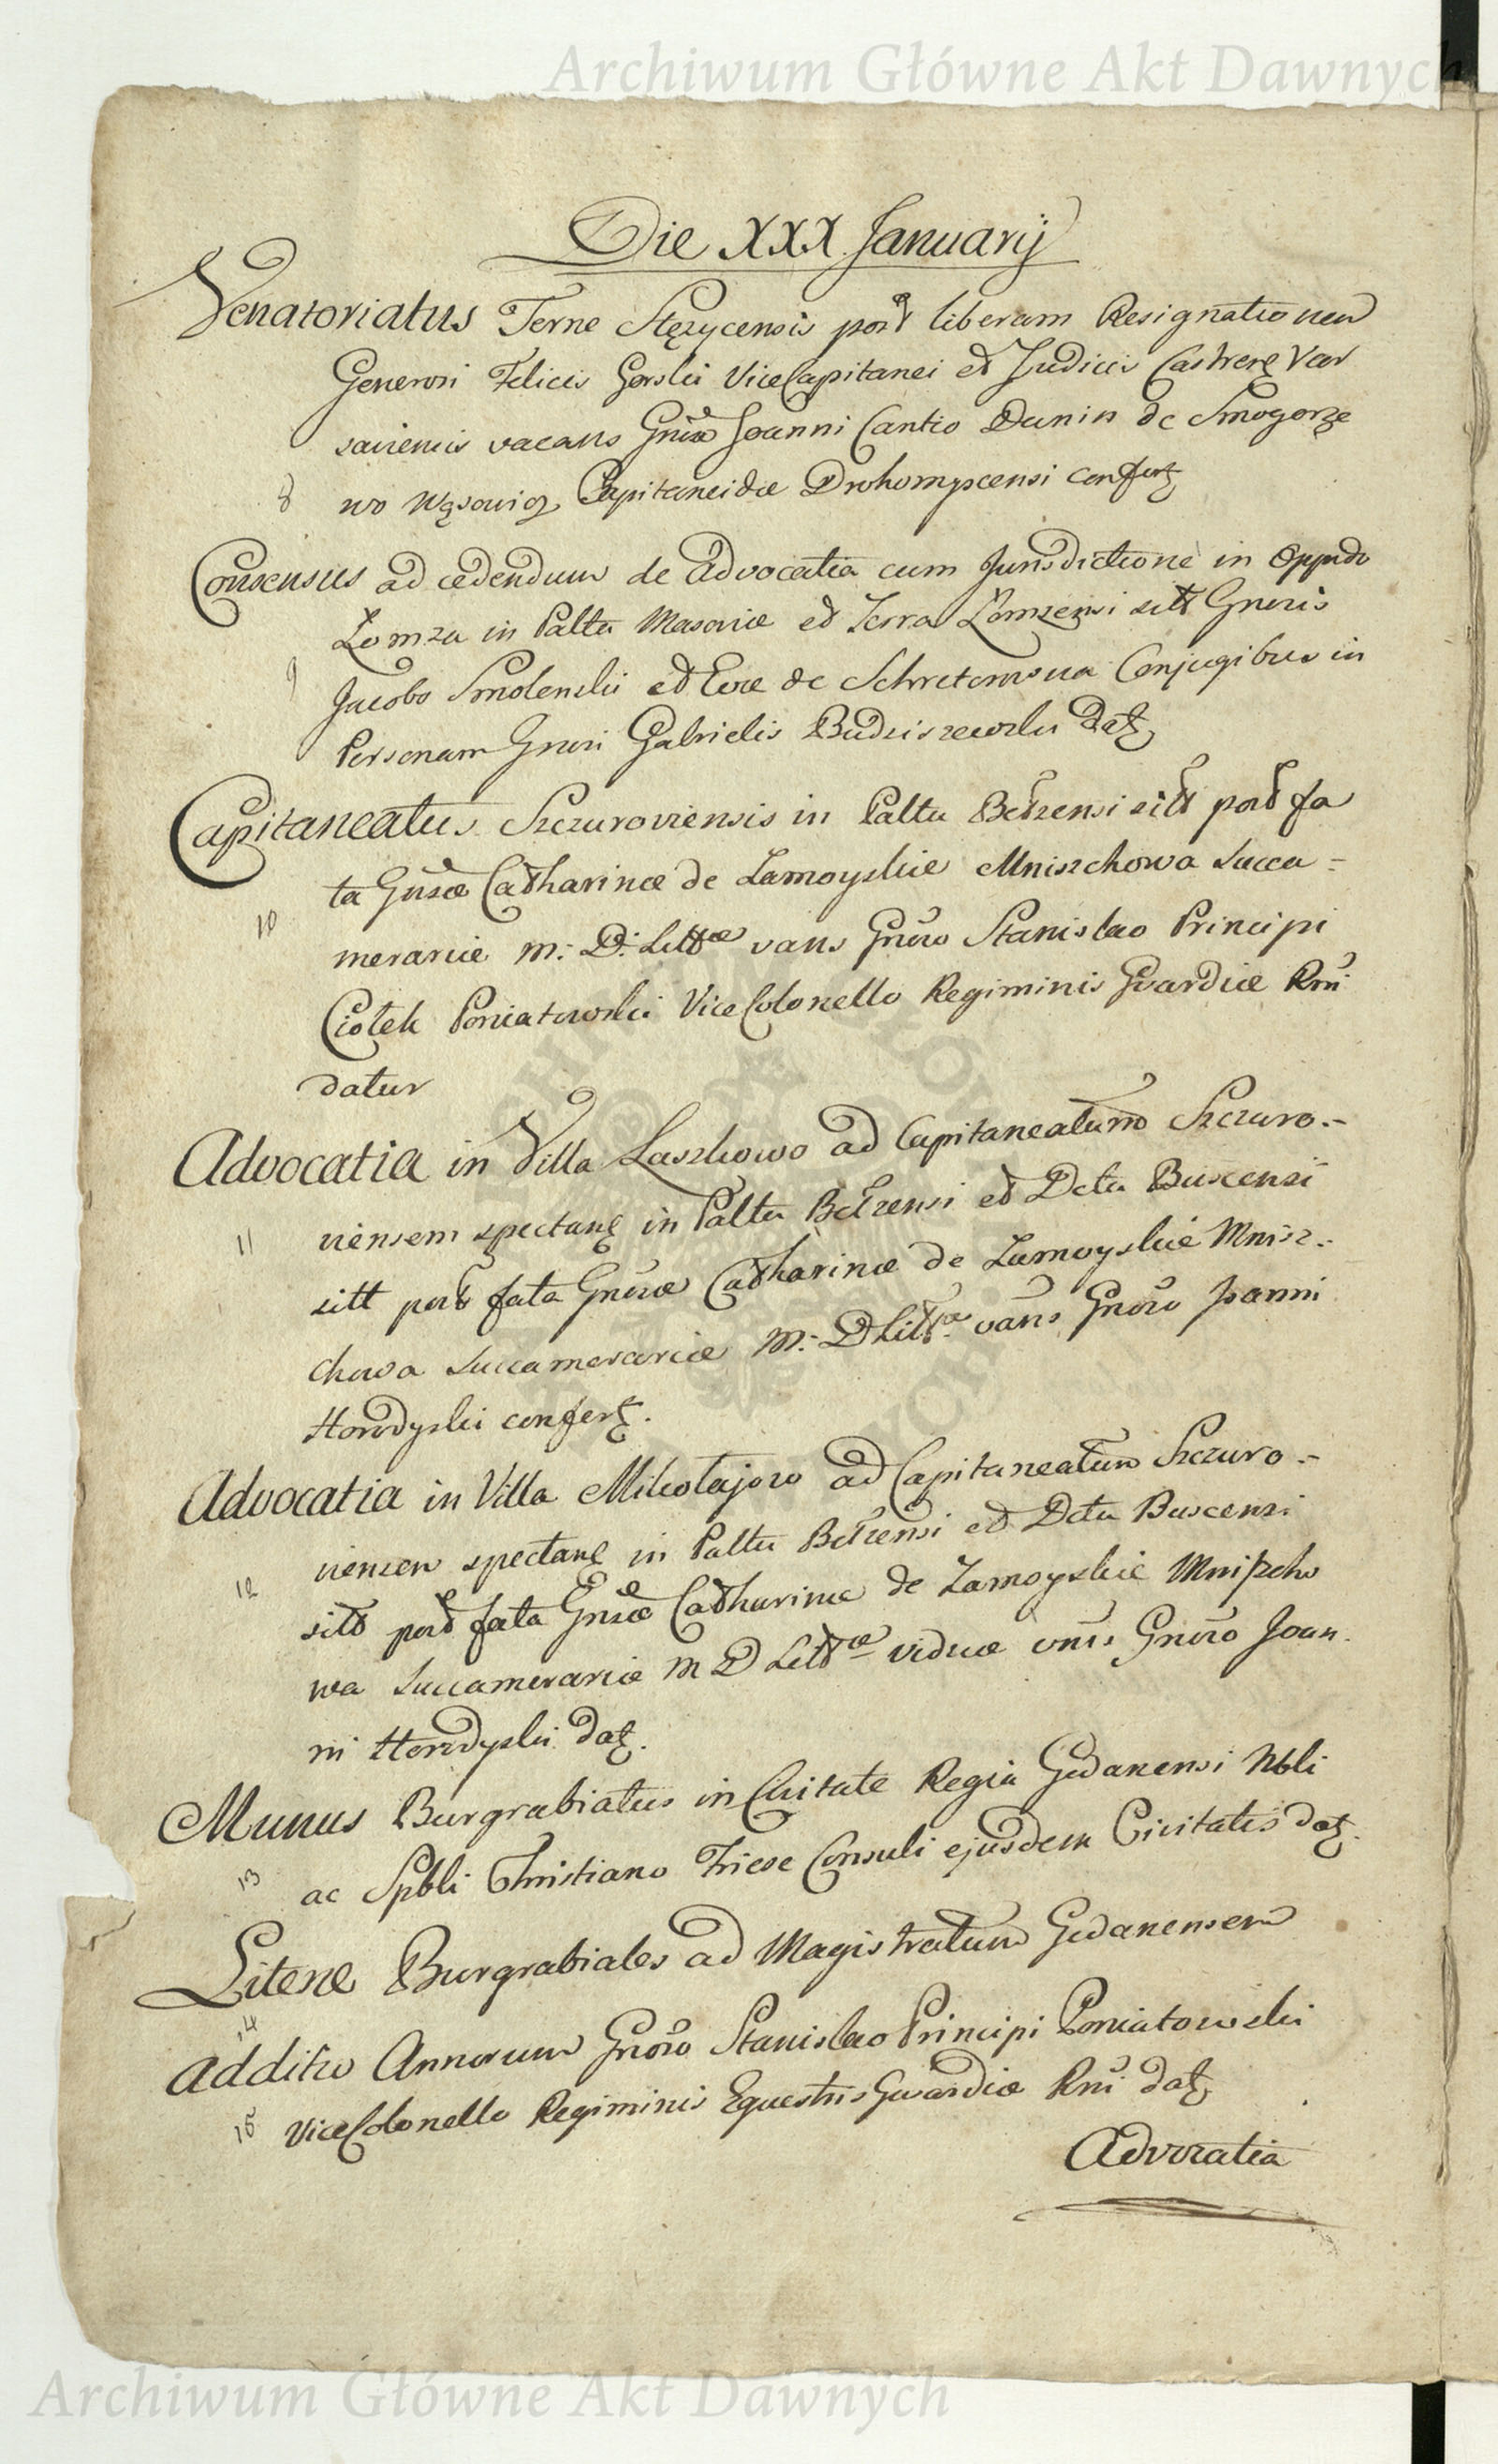 Archiwum Główne Akt Dawnych
Die XXX Januarij
Venatoriatus Terrae Stężycensis post liberam Resignationem
Generosi Felicis Gorski ViceCapitanei et Judicis Castren Var
saviensis vacans Gnoso Joanni Cantio Dunin de Smogorze
8 wo Wąsowicz Capitaneidae confert
Consensus ad cedendum de Advocatia cum Jurisdictione in Oppido
Łomza in Palttu Masoviae et Terra Łomzensi sitt Gnosis
9 Jacobo Smolenski et Evae de Conjugibus in
Personam Gnosi Gabrielis Budziszewski Dat
Capitaneatus Szczuroviensis in Palttu Bełzensi sitt post fa
ta Gnosae Catharinae de Zamoyskie Mniszchowa Succa=
10 merariae M: D: Littae vans Gnoso Stanislao Principi
Ciołek Poniatowski ViceColonello Regiminis Gvardiae Rni
datur
Advocatia in Villa Laszkowo ad Capitaneatum Szczuro=
11 viensem spectans in Palttu Bełzensi et Dctu Buscensi
sitt post fata Gnosae Catharinae de Zamoyskie Mnisz=
chowa Succamerariae M: D Litt̄ae vans Gnoso Joanni
Horodyski confert.
Advocatia in Villa Mikołajow ad Capitaneatum Szczuro=
12 viensem spectans in Palttu Bełzensi et Dctu Buscensi
sitt post fata Gnosae Catharinae de Zamoyskie Mniszcho
wa Succamerariae M D Littae viduae vans Gnoso Joan
ni Horodyski dat.
Munus Burgrabiatus in Civitate Regia Gedanensi Nbli
13 ac Spbli Christiano Friese Consuli ejusdem Civitatis dat.
Literae Burgrabiales ad Magistratum Gedanensem
14
Additio Annorum Gnoso Stanislao Principi Poniatowski
15 ViceColonello Regiminis Equestris Gwardiae Rni dat
Advocatia
Archiwum Główne Akt Dawnych